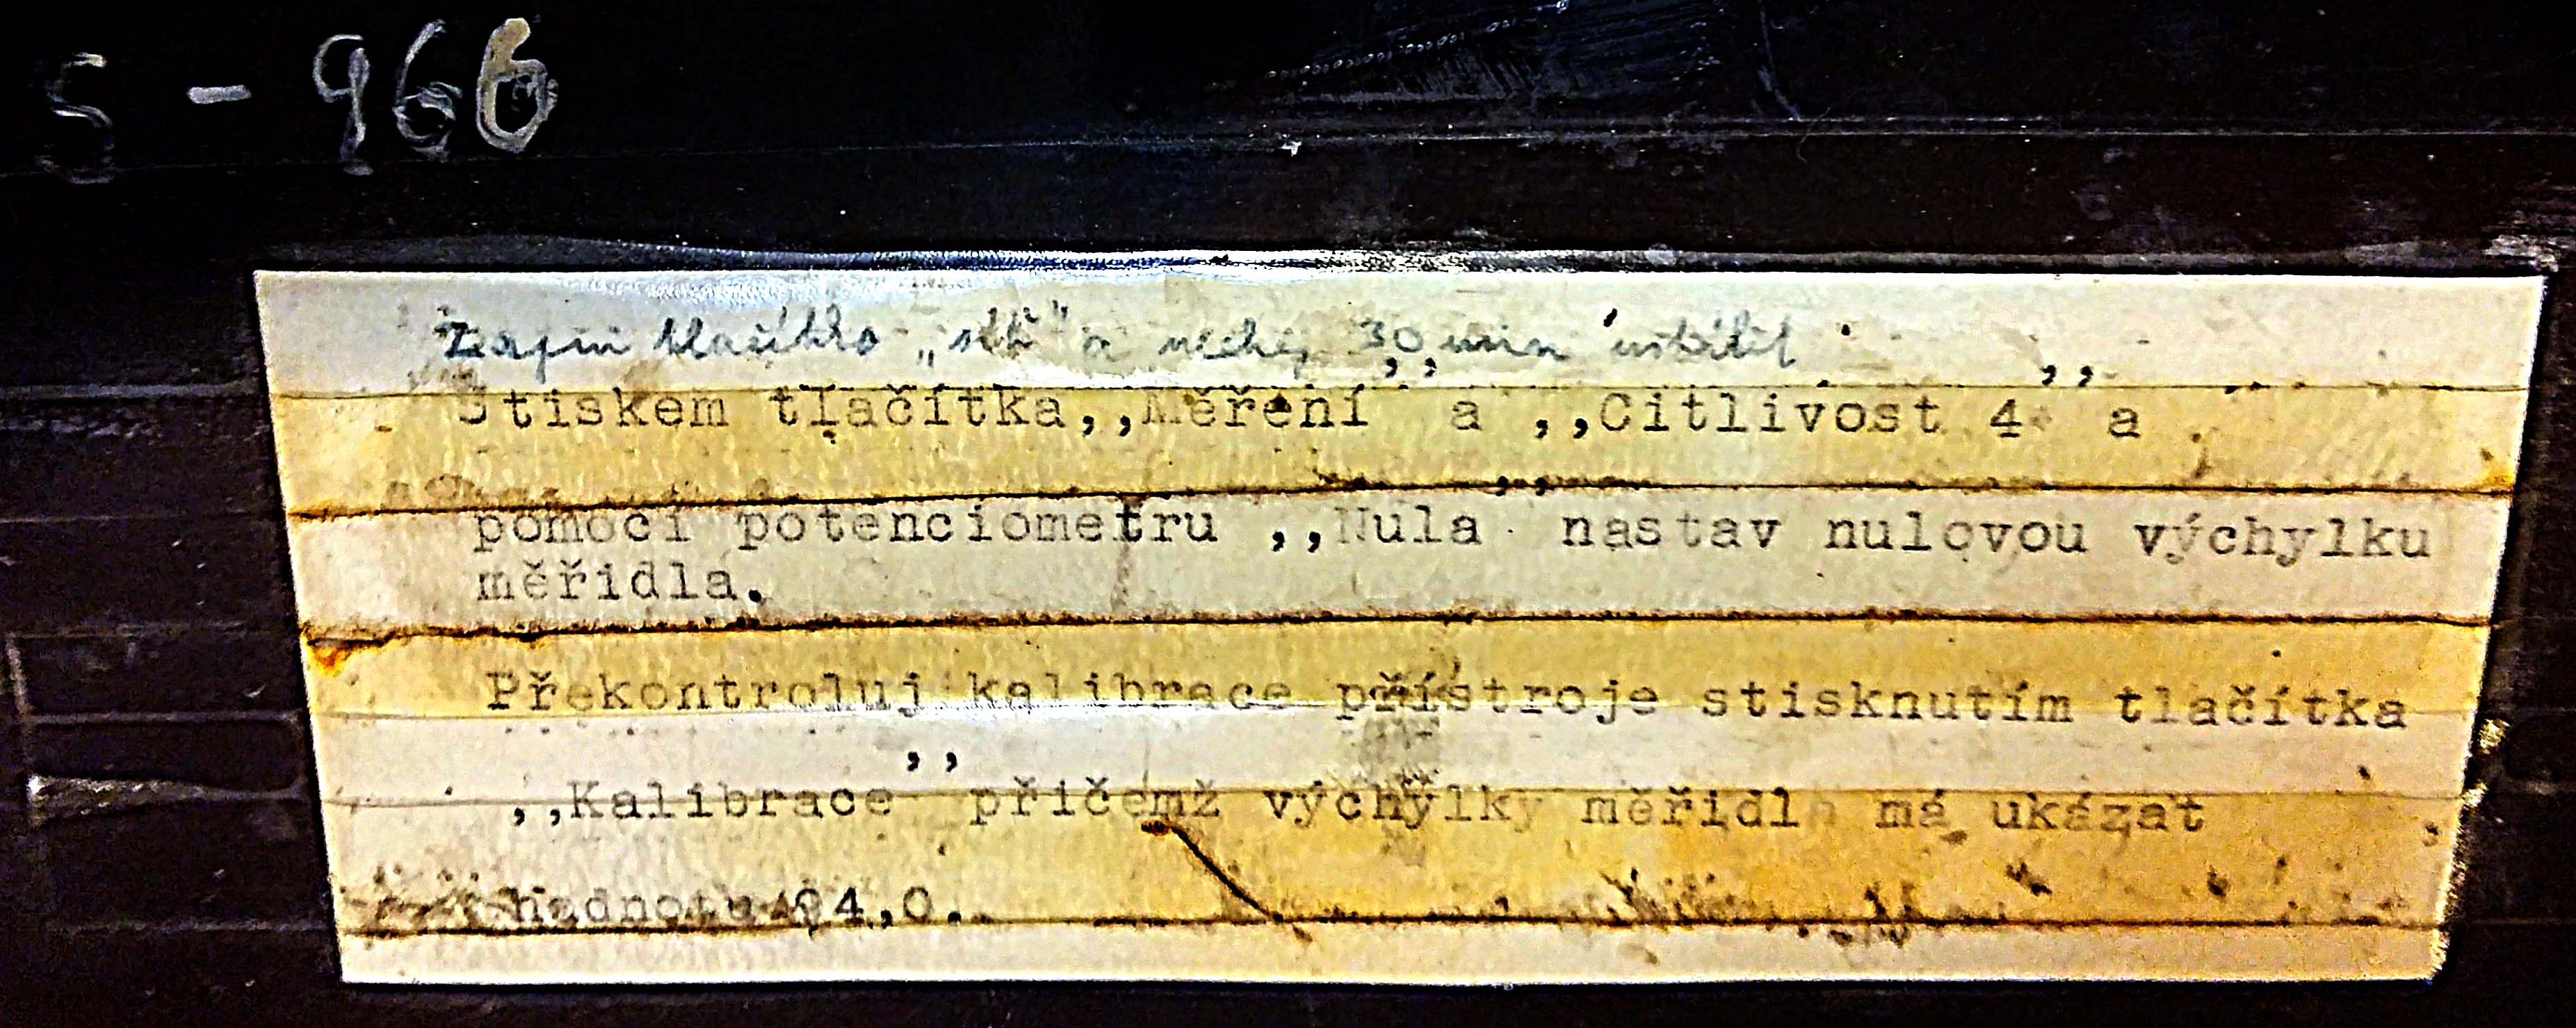 S - 966
Zapni tlačítko „síť" a nechej 30 min ustálit
Stiskem tlačítka,,Měření'' a ,,Citlivost 4'' a
pomocí potenciometru ,,Nula'' nastav nulovou výchylku
měřidla.
Překontroluj kalibrace přístroje stisknutím tlačítka
,,Kalibrace'' přičemž výchylky měřidla má ukázat
hodnotu 94,0.